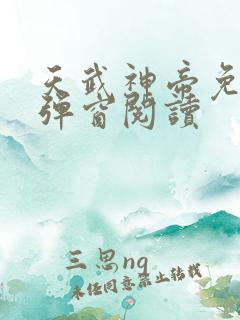 天武神帝免
彈窗閱讀
三思ng
未经同意禁止转载